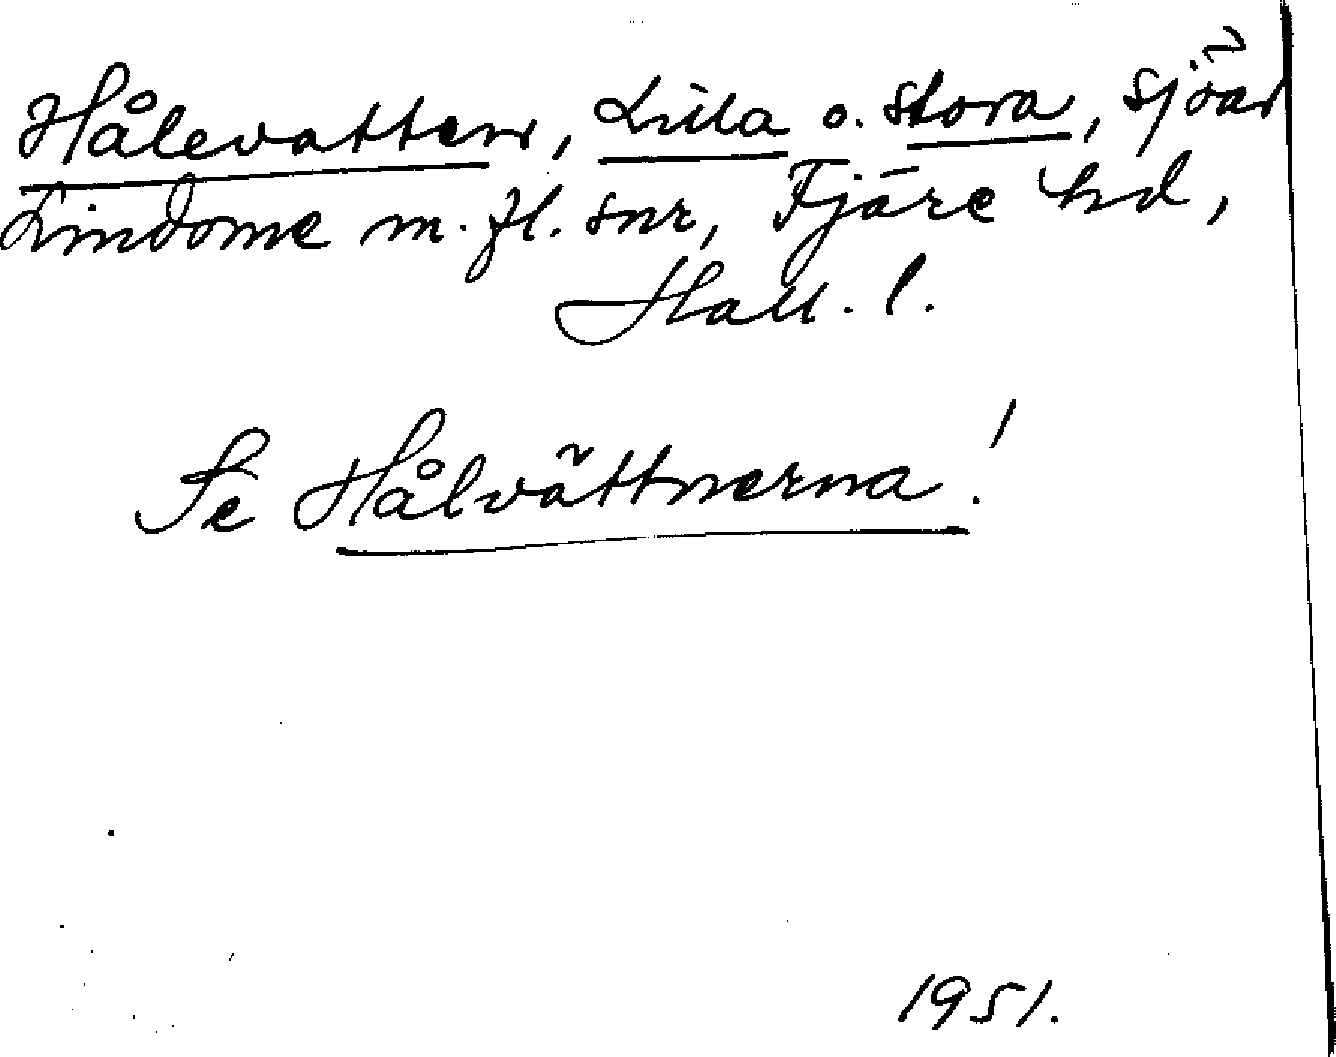 Hålevatten, Lilla o. stora, sjöar
Lindome m. fl. snr, Fjäre hd,
Hall. l.
Se Hålvättnerna!
1951.